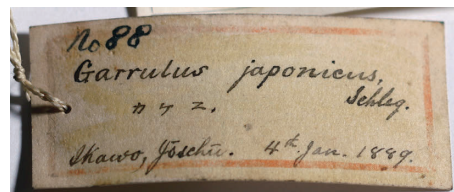 No 88
Garrulus japonicus,
Schleg.
カケス.
Ikawo, Jōschū. 4th Jan. 1889.